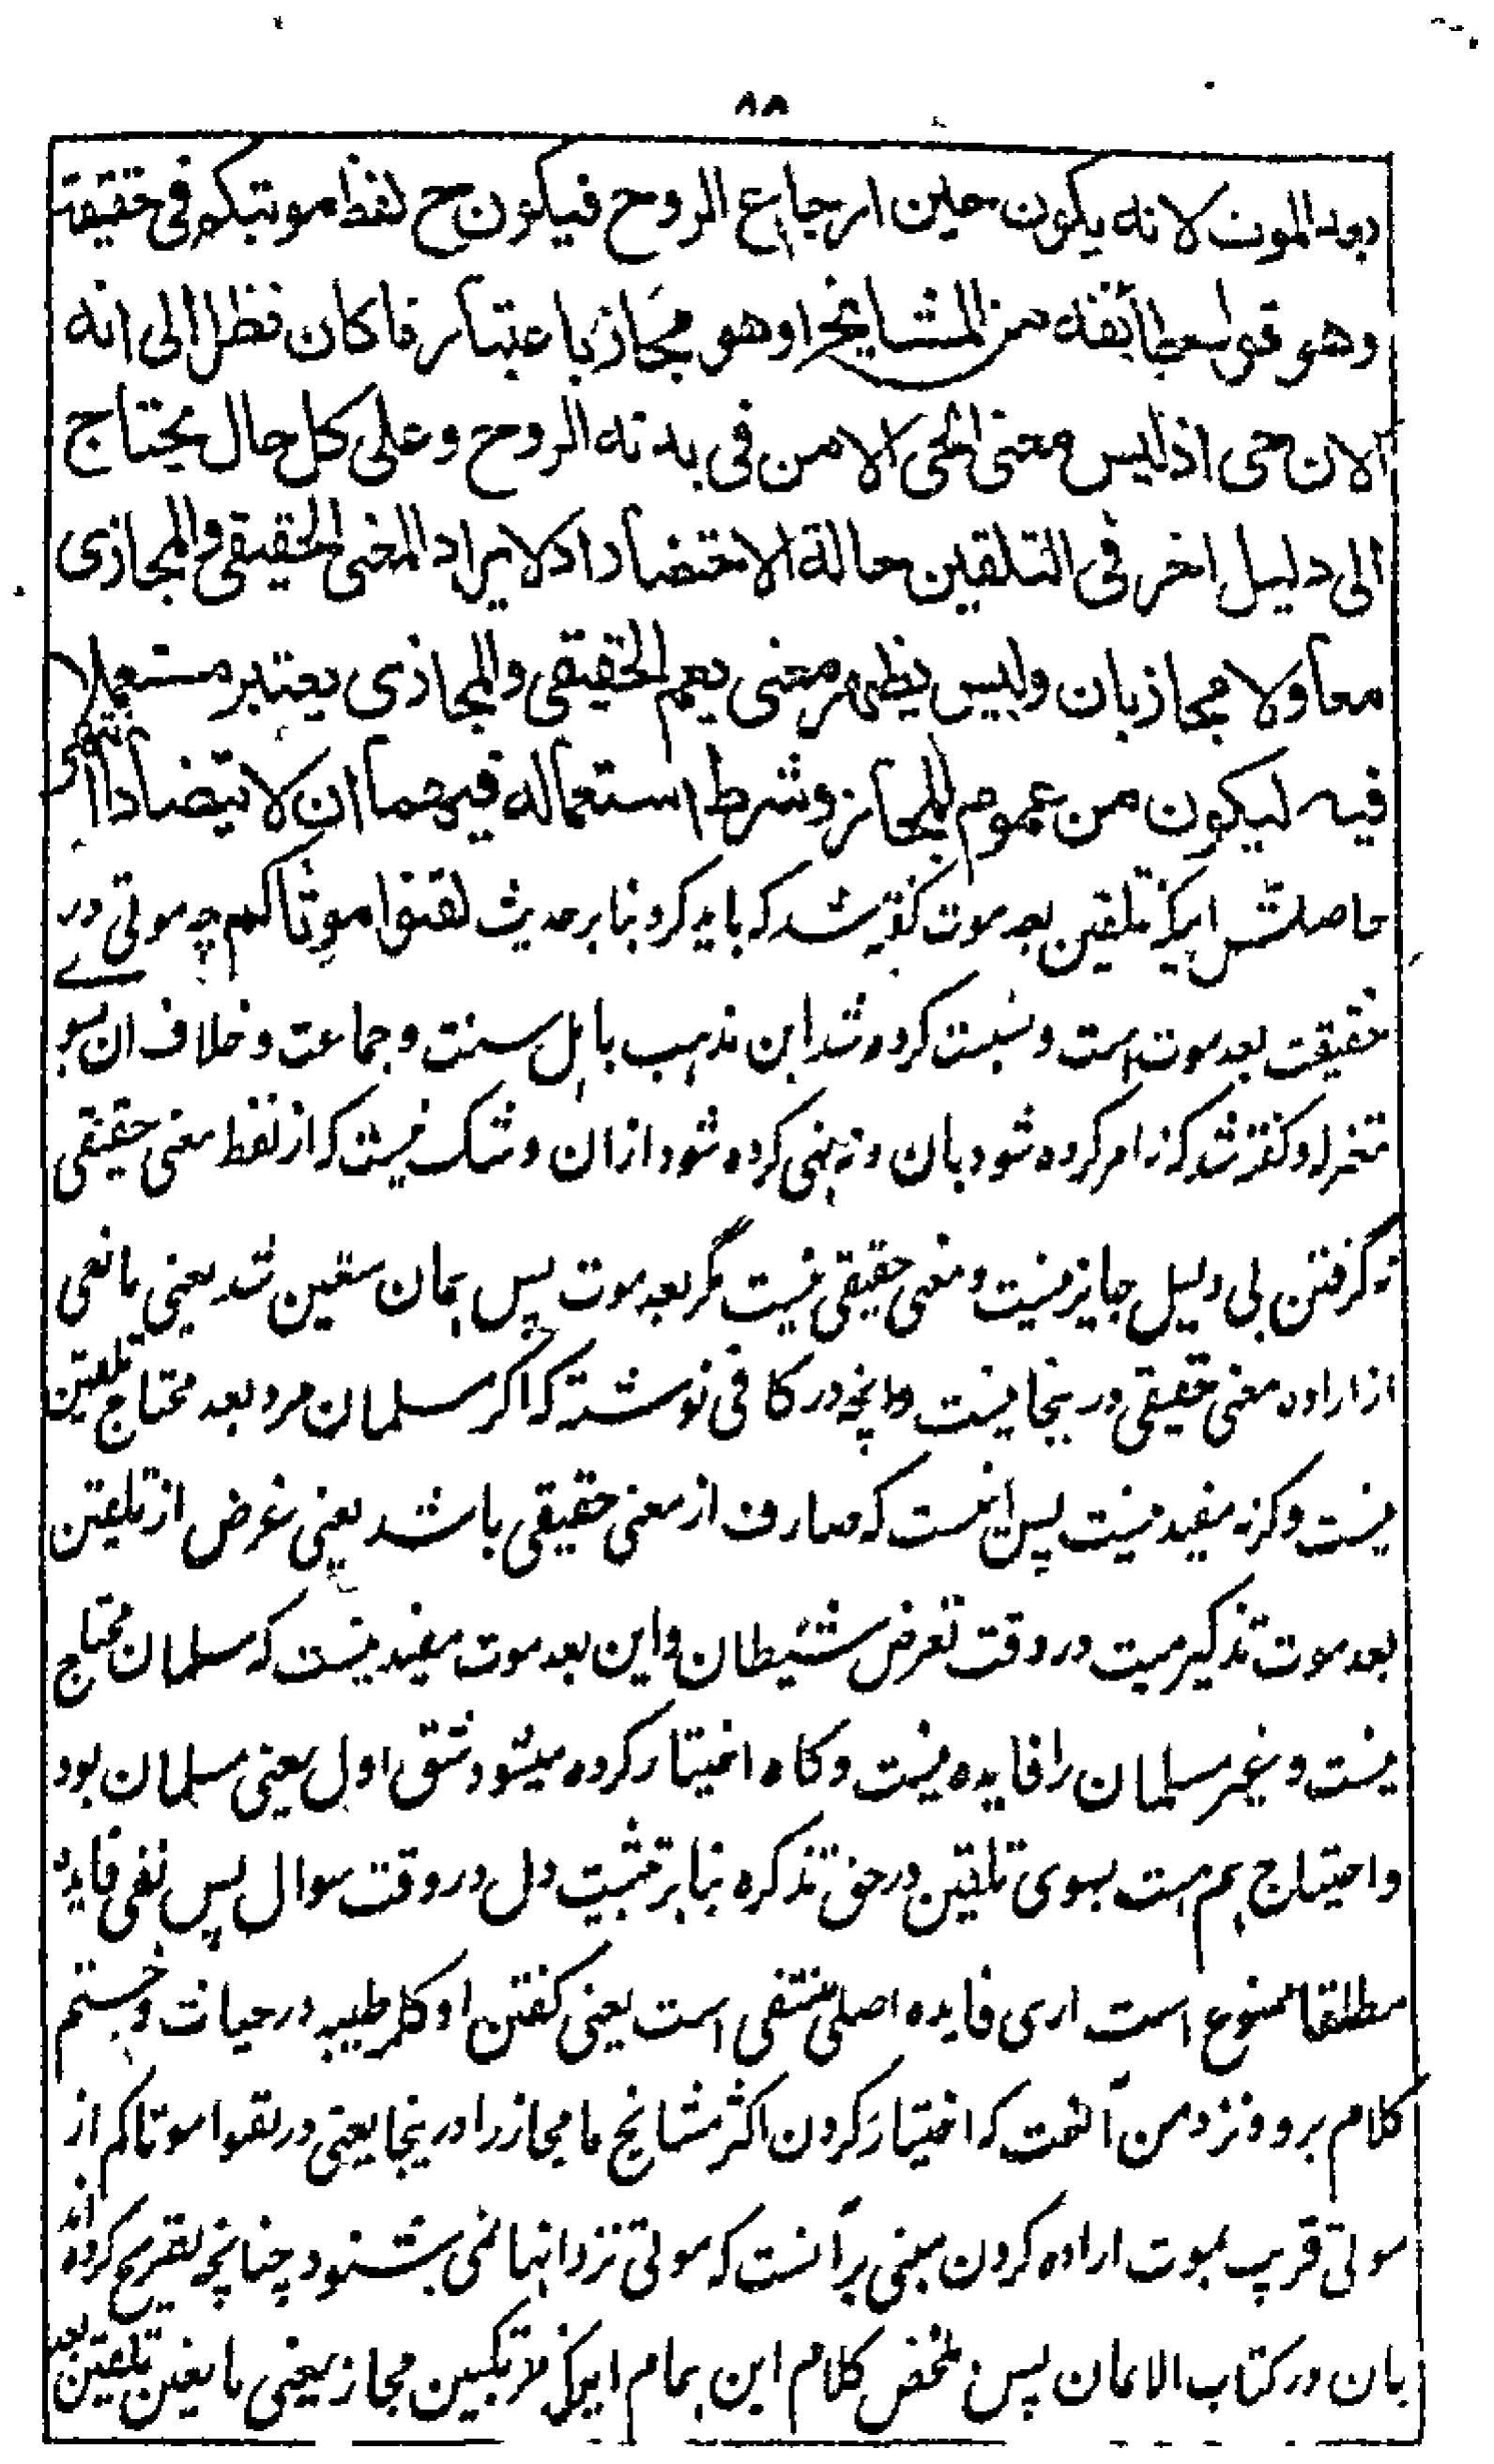 ۸۸
بعد الموت لانه يكون حين ارجاع الروح فيكون ح لفظ موتىكم فى حقيقة
وهو قول طائفة من المشايخ او هو مجاز باعتبار ما كان نظرا الى انه
الان حى اذ ليس معنى الحى الا من فى بدنه الروح وعلى كل حال يحتاج
الى دليل اخر فى التلقين حالة الاحتضار اذ لا يراد المعنى الحقيقى والمجازى
معا ولا مجازيان وليس يظهر معنى يعم الحقيقى والمجازى يعتبر مستعملا
فيه ليكون من عموم المجاز وشرط استعماله فيهما ان لا يتضادا انتهى
حاصلش اینکه تلقین بعد موت گفته شد که باید کرد بنا بر حدیث لقنوا موتاکم چه موتی در
حقیقت بعد موت است و نسبت کرده شد این مذهب باهل سنت و جماعت و خلاف ان بسوے
معتزله و گفته شد که نه امر کرده شود بان و نه نهی کرده شود ازان و شک نیست که از لفظ معنی حقیقی
نه گرفتن بی دلیل جایز نیست و معنی حقیقی نیست مگر بعد موت پس همان متعین شد یعنی مانعی
از اراده معنی حقیقی در ینجا نیست و انچه در کافی نوشته که اگر مسلمان مرد بعد محتاج تلقین
نیست وگرنه مفید نیست پس این نیست که صارف از معنی حقیقی باشد یعنی غرض از تلقین
بعد موت تذکیر میت در وقت تعرض شیطان و این بعد موت مفید نیست که مسلمان محتاج
نیست و غیر مسلمان را فایده نیست و گاه اختیار کرده میشود شق اول یعنی مسلمان بود
و احتیاج هم هست بسوی تلقین در حق تذکره بنا بر تثبیت دل در وقت سوال پس نفی فایده
مطلقا ممنوع است اری فایده اصلی منتفی است یعنی گفتن او کلمه طیبه در حیات و ختم
کلام برو و نزد من آنست که اختیار کردن اکثر مشائخ ما مجاز را در ینجا یعنی در لقنوا موتاکم از
موتی قریب بموت اراده کردن مبنی بر آنست که موتی نزد انها نمی شنود چنانچه تصریح کرده اند
بان در کتاب الایمان پس ملخص کلام ابن همام اینکه مرتکبین مجاز یعنی مانعین تلقین بعد